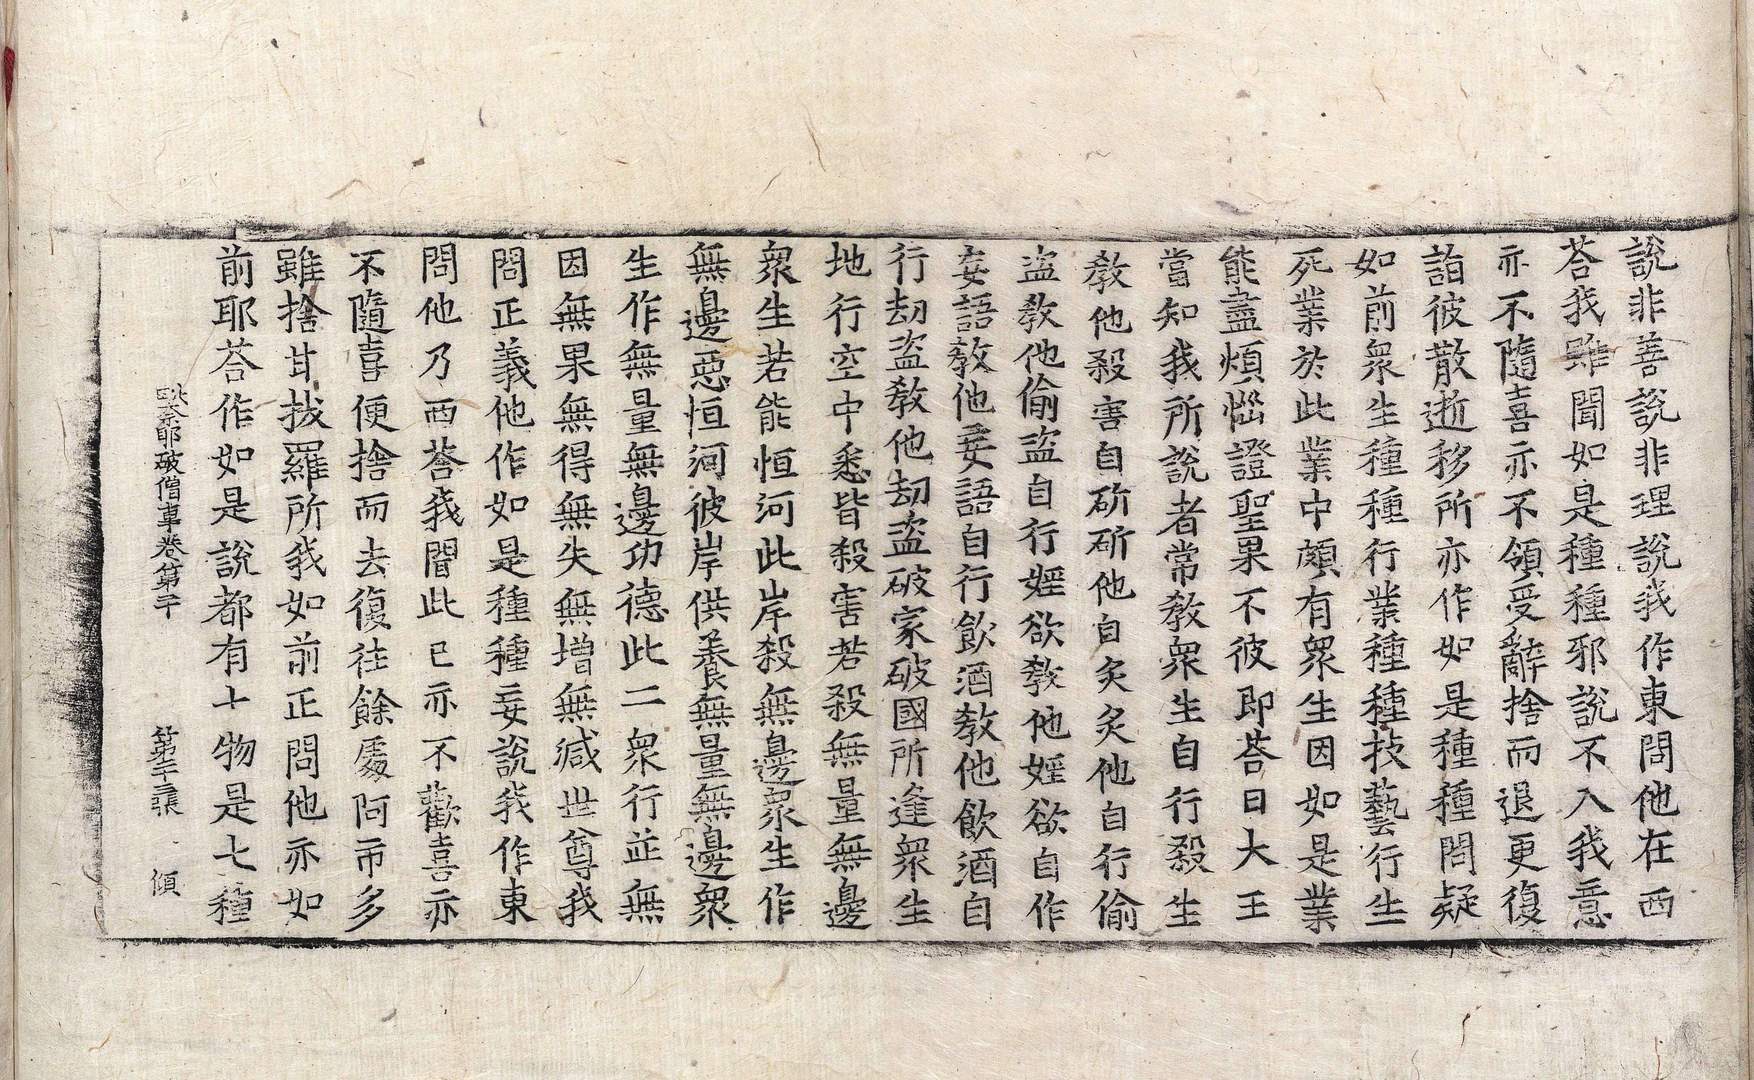 說非善說非理說我作東問他在西
荅我雖聞如是種種邪說不入我意
亦不隨喜亦不領受辭捨而退更復
詣彼散逝移所亦作如是種種問疑
如前衆生種種行業種種技藝行生
死業於此業中頗有衆生因如是業
能盡煩惱證聖果不彼即荅曰大王
當知我所說者常教衆生自行殺生
教他殺害自斫斫他自炙炙他自行偷
盗教他偷盗自行婬欲教他婬欲自作
妄語教他妄語自行飲酒教他飲酒自
行劫盗教他劫盗破家破國所逢衆生
地行空中悉皆殺害若殺無量無邊
衆生若能恒河此岸殺無邊衆生作
無邊惡恒河彼岸供養無量無邊衆
生作無量無邊功德此二衆行並無
因無果無得無失無增無減世尊我
問正義他作如是種種妄說我作東
問他乃西荅我聞此已亦不歡喜亦
不隨喜便捨而去復往餘處阿市多
雖捨甘拔羅所我如前正問他亦如
前耶荅作如是說都有十物是七種
毗奈耶破僧事卷第二十 第二十三張 傾